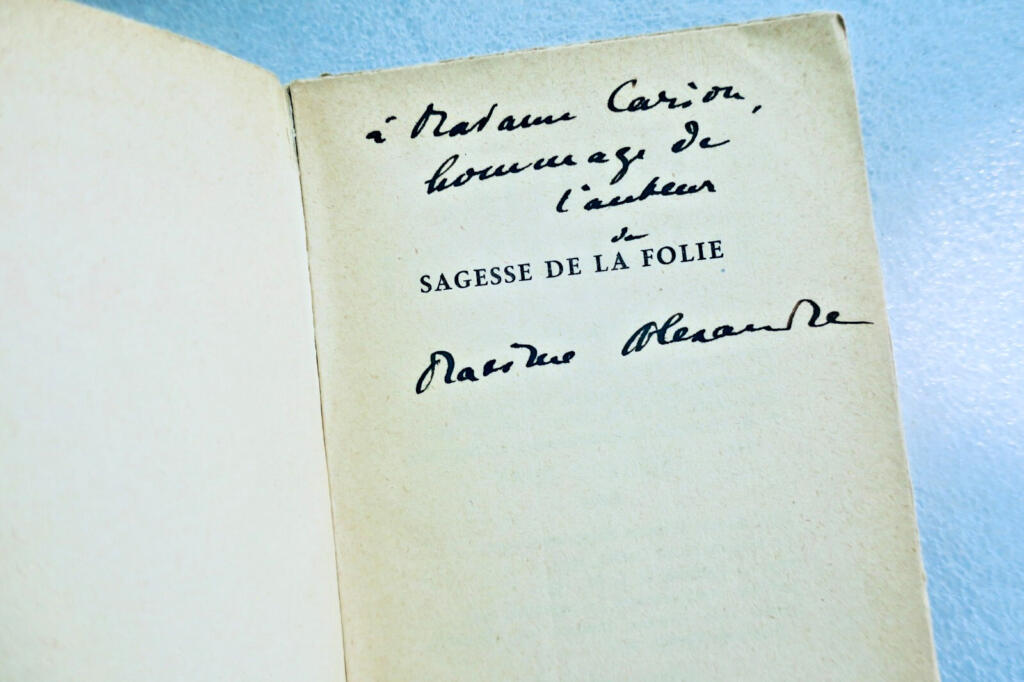 à Madame Carion,
hommage de
l'auteur
de
SAGESSE DE LA FOLIE
Maxime Alexandre